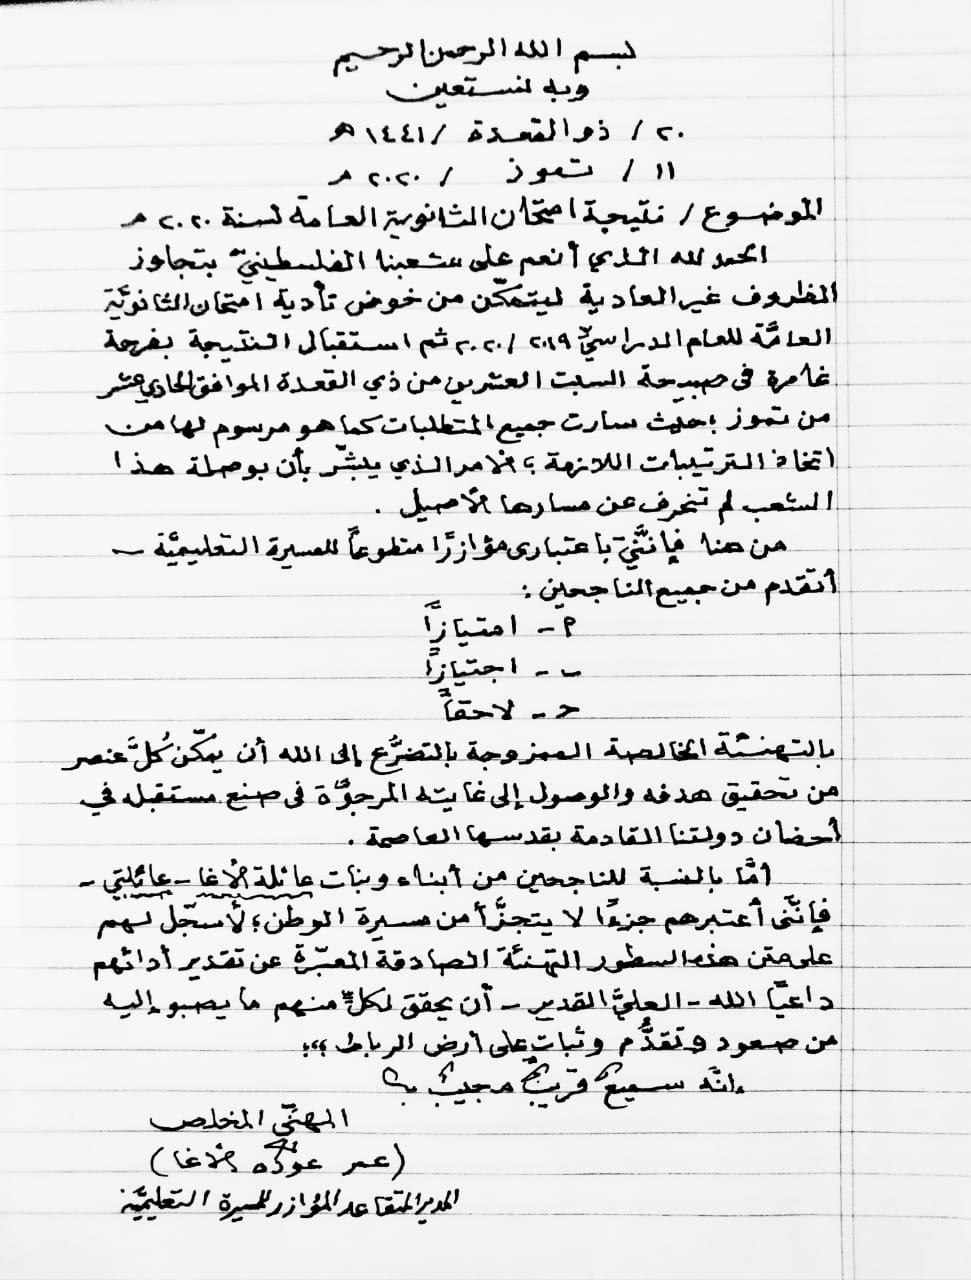 بسم الله الرحمن الرحيم
وبه نستعين
٢٠ / ذو القعدة / ١٤٤١ هـ
١١ / تموز / ٢٠٢٠ م
الموضوع / نتيجة امتحان الثانوية العامة لسنة ٢٠٢٠ م
الحمد لله الذي أنعم على شعبنا الفلسطينيّ بتجاوز
الظروف غير العادية ليتمكّن من خوض تأدية امتحان الثانويَّة
العامَّة للعام الدراسيّ ٢٠١٩ / ٢٠٢٠ ثم استقبال النتيجة بفرحة
غامرة في صبيحة السبت العشرين من ذي القعدة الموافق الحادي عشر
من تموز بحيث سارت جميع المتطلبات كما هو مرسوم لها من
اتخاذ الترتيبات اللازمة ؛ الأمر الذي يبشّر بأن بوصلة هذا
الشعب لم تنحرف عن مسارها الأصيل .
من هنا فإنَّنيّ باعتباري مؤازرًا متطوعاً للمسيرة التعليميَّة –
أتقدم من جميع الناجحين :
أ - امتيازاً
ب - اجتيازاً
ح - لاحقاً
بالتهنئة الخالصة الممزوجة بالتضرُّع إلى الله أن يمكّن كُلَّ عنصر
من تحقيق هدفه والوصول إلى غايته المرجوَّة في صنع مستقبله في
أحضان دولتنا القادمة بقدسها العاصمة .
أمَّا بالنسبة للناجحين من أبناء وبنات عائلة الأغا - عائلتي -
فإنَّني أعتبرهم جزءًا لا يتجزَّأ من مسيرة الوطن ؛ لأسجّل لهم
على متن هذه السطور التهنئة الصادقة المعبّرة عن تقدير أدائهم
داعيًا الله - العليَّ القدير - أن يحقق لكلٍّ منهم ما يصبو إليه
من صعود وتقدُّم وثبات على أرض الرباط ،،؛
إنَّه سميعٌ قريبٌ مجيبٌ
المهنّئ المخلص
(عمر عودة الأغا)
المدير المتقاعد المؤازر للمسيرة التعليميَّة